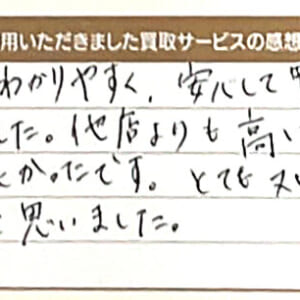 用いただきました買取サービスの感想
わかりやすく、安心して
した。他店よりも高い
よかったです。とても
と思いました。